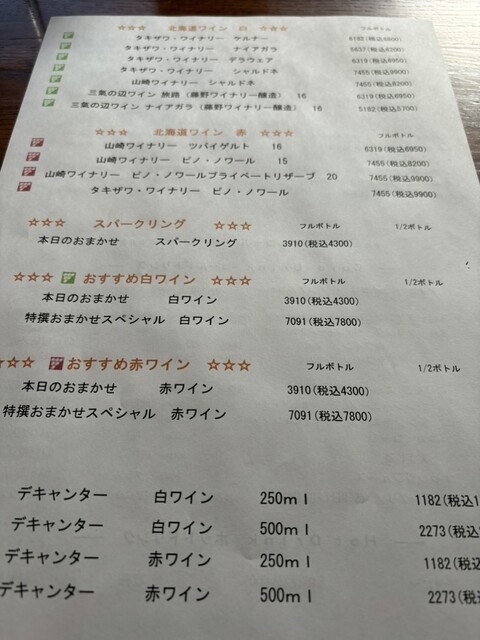 ☆☆☆ 北海道ワイン 白 ☆☆☆ フルボトル
タキザワ・ワイナリー ケルナー 6182(税込6800)
タキザワ・ワイナリー ナイアガラ 5637(税込6200)
タキザワ・ワイナリー デラウェア 6319(税込6950)
タキザワ・ワイナリー シャルドネ 7455(税込8200)
山崎ワイナリー シャルドネ 7455(税込8200)
三氣の辺ワイン 旅路（藤野ワイナリー醸造） 16 6319(税込6950)
三氣の辺ワイン ナイアガラ（藤野ワイナリー醸造） 16 5182(税込5700)
☆☆☆ 北海道ワイン 赤 ☆☆☆ フルボトル
山崎ワイナリー ツバイゲルト 16 6319(税込6950)
山崎ワイナリー ピノ・ノワール 15 7455(税込8200)
山崎ワイナリー ピノ・ノワールプライベートリザーブ 20 7455(税込9900)
タキザワ・ワイナリー ピノ・ノワール 7455(税込9900)
☆☆☆ スパークリング ☆☆☆ フルボトル 1/2ボトル
本日のおまかせ スパークリング 3910(税込4300)
☆☆☆ おすすめ白ワイン ☆☆☆ フルボトル 1/2ボトル
本日のおまかせ 白ワイン 3910(税込4300)
特撰おまかせスペシャル 白ワイン 7091(税込7800)
☆☆☆ おすすめ赤ワイン ☆☆☆ フルボトル 1/2ボトル
本日のおまかせ 赤ワイン 3910(税込4300)
特撰おまかせスペシャル 赤ワイン 7091(税込7800)
デキャンター 白ワイン 250ml 1182(税込1
デキャンター 白ワイン 500ml 2273(税込
デキャンター 赤ワイン 250ml 1182(税込
デキャンター 赤ワイン 500ml 2273(税込